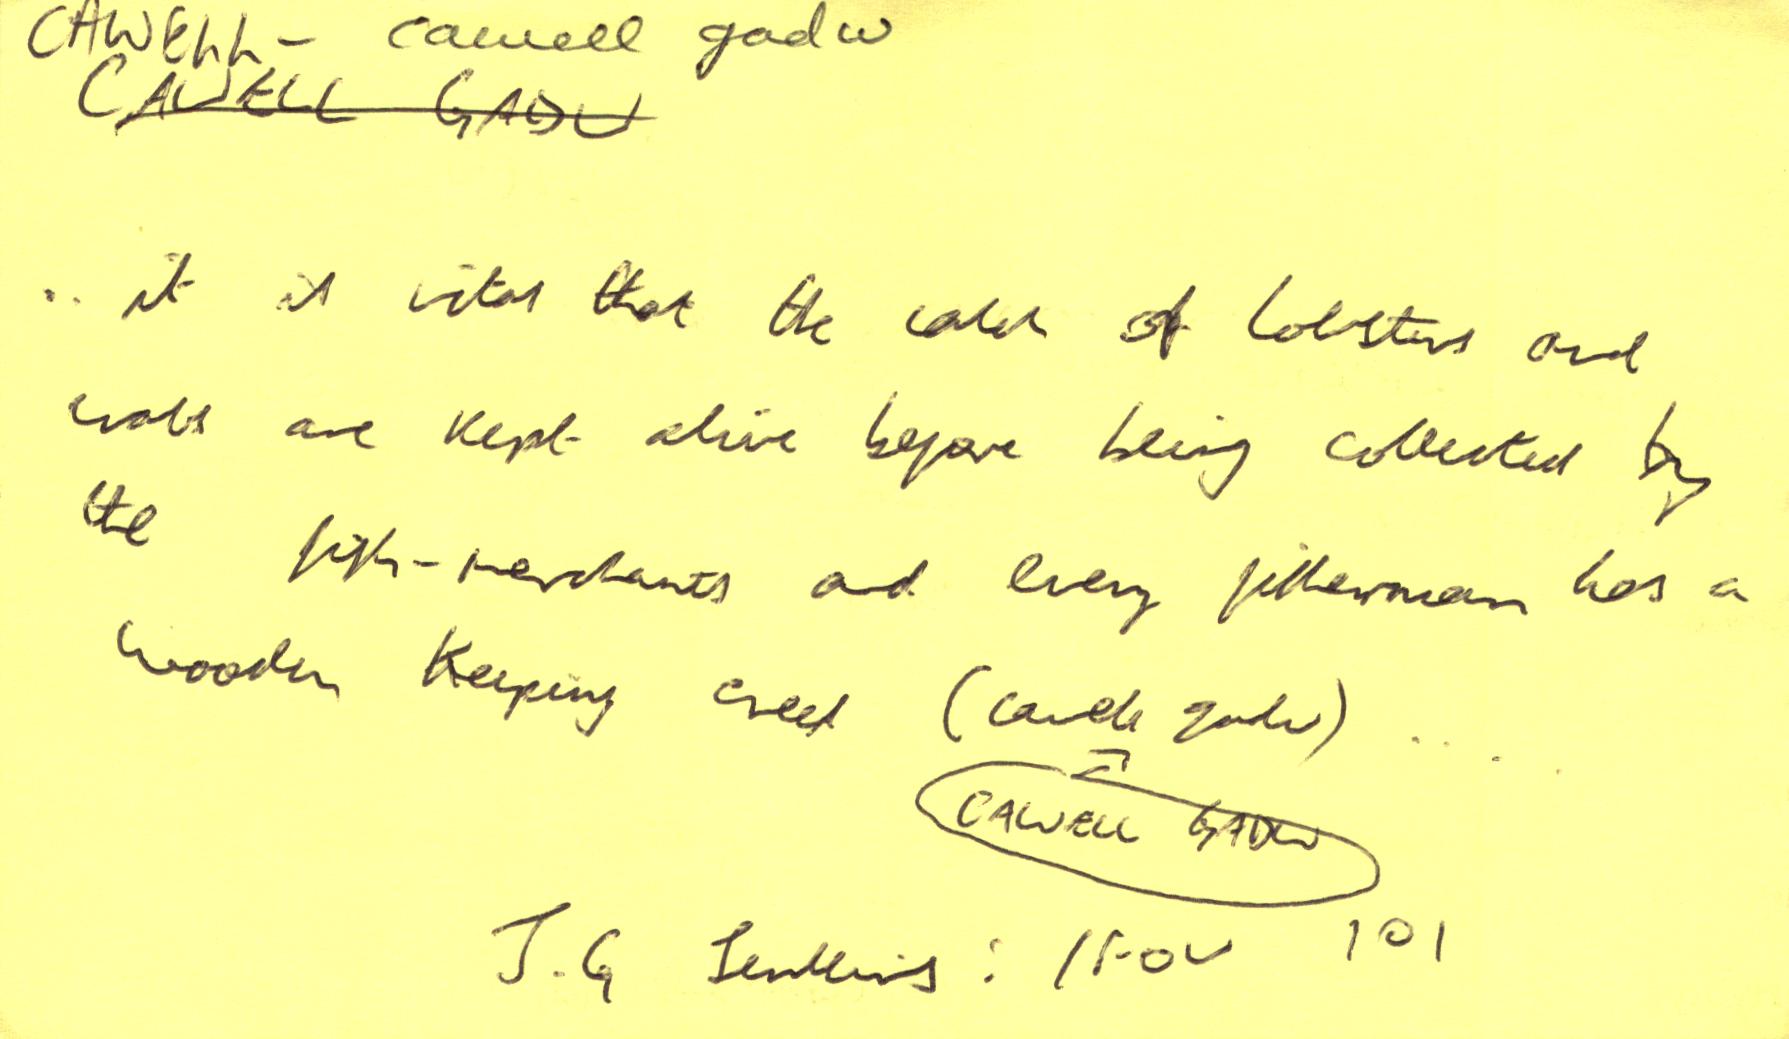 CAWELL - cawell gadw
CAWELL GADW
.. it is vital that the catch of lobsters and
crabs are kept alive before being collected by
the fish-merchants and every fisherman has a
wooden keeping creel (cawell gadw) ....
CAWELL GADW
J.G Jenkins : 101